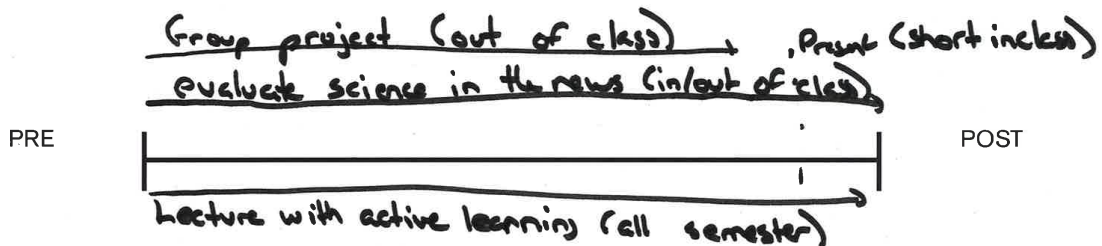 Group project (out of class)
Present (short inclass)
evaluate science in the news (in/out of class)
PRE
POST
Lecture with active learning (all semester)